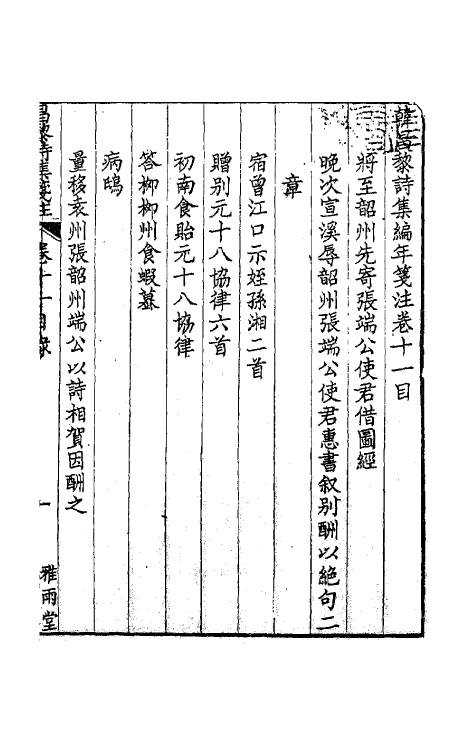 韓昌黎詩集編年箋注卷十一目
將至韶州先寄張端公使君借圖經
晚次宣溪辱韶州張端公使君惠書叙别酬以絶句二
章
宿曾江口示姪孫湘二首
贈别元十八協律六首
初南食貽元十八協律
答柳柳州食蝦蟇
病鴟
量移袁州張韶州端公以詩相賀因酬之
昌黎詩集箋注 卷十一目錄 一 雅雨堂